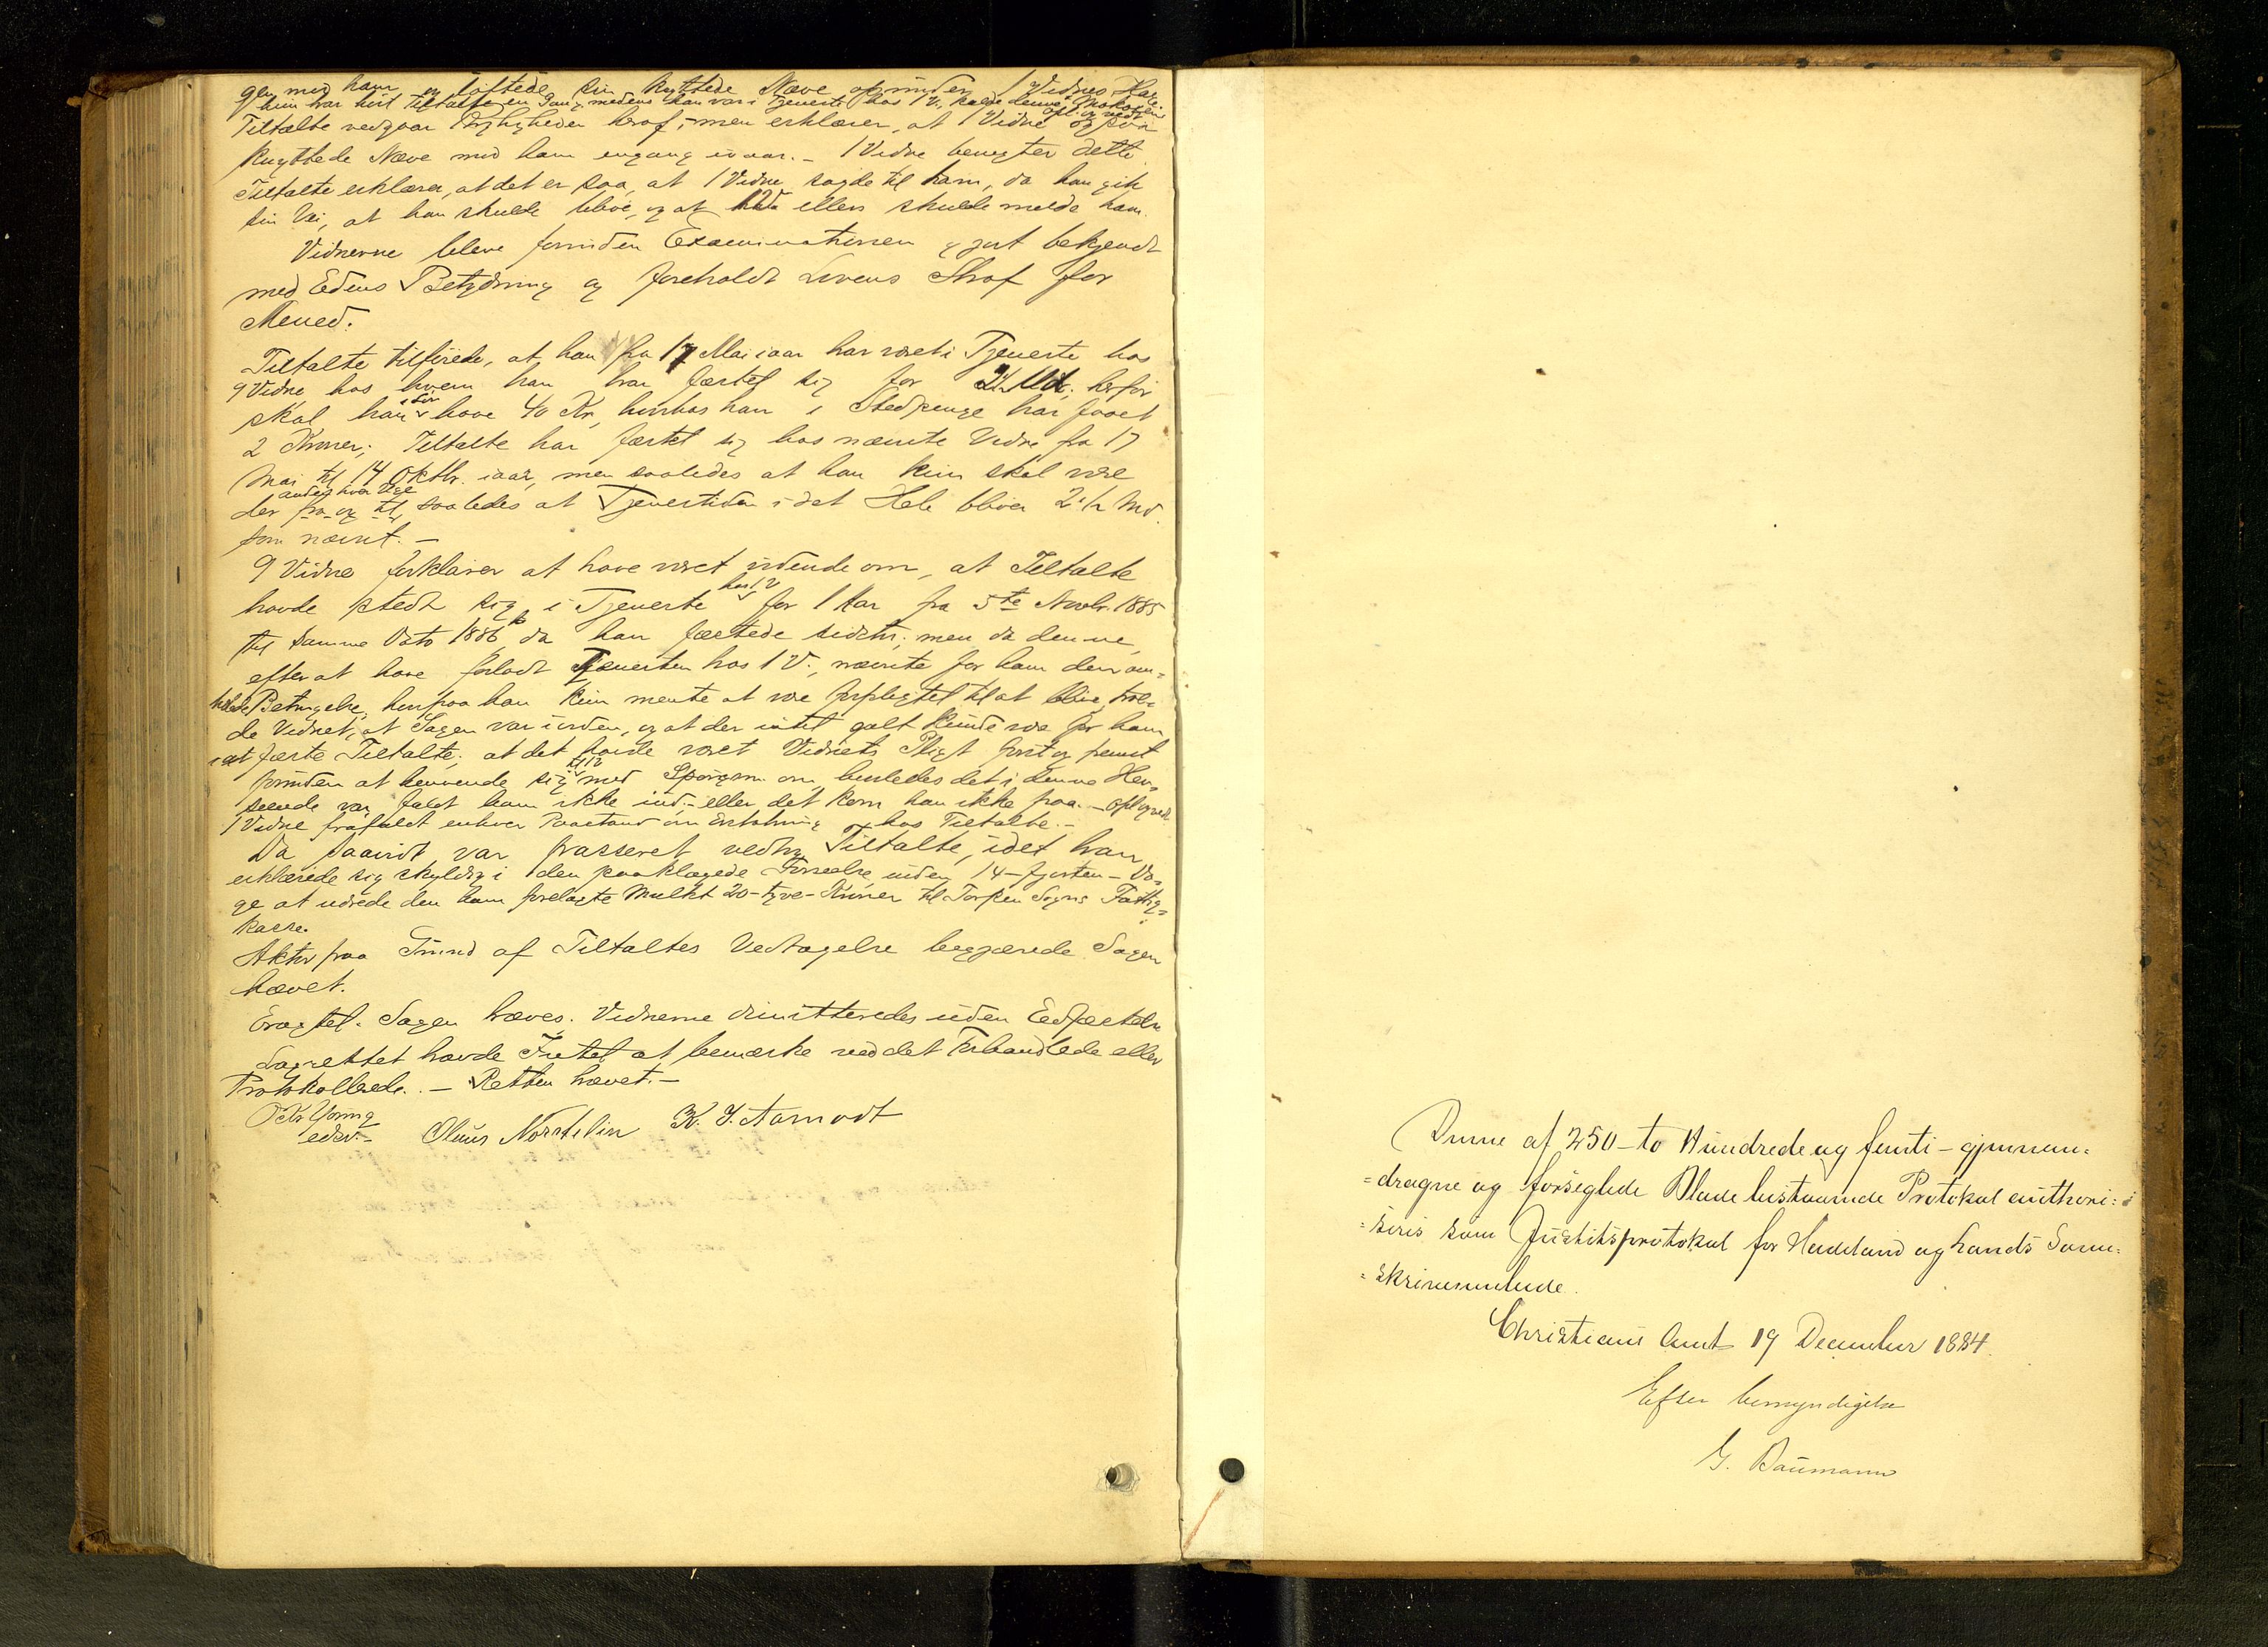 gen med ham og løftede sin knyttede Næve op under 1 Vidnes Hage
hun har hørt Tiltalte en Gang medens han var i Tjeneste hos 1 V., kalde denne
opl. og vedt.
Tiltalte vedgaar Rigtigheden heraf; men erklærer, at 1 Vidne ogsaa
knyttede Næve mod ham engang ivaar. - 1 Vidne benegter dette
Tiltalte erklærer, at det er saa, at 1 Vidne sagde til ham, da han gik
sin Vei, at han skulde blive, og at ellers skulde melde ham.
Vidnerne bleve forinden Examinationen gjort bekjendt
med Edens Betydning og foreholdt Lovens Straf for
Mened.
Tiltalte tilføiede, at han fra 17 Mai iaar har været i Tjeneste hos
9 Vidne hos hvem han har fæstet sig for 2½ Md. herfor
skal han have 40 Kr, hvorhos han i Stedpenge har faaet
2 Kroner; Tiltalte har fæstet sig hos nævnte Vidne fra 17
Mai til 14 Oktbr. iaar, men saaledes at han kun skal være
anden hver Uge
der fra og til saaledes at Tjenestetiden i det Hele bliver 2½ Md.
som nævnt. -
9 Vidne forklarer at have været vidende om, at Tiltalte
hos 1 V
havde stedt sig i Tjeneste for 1 Aar fra 5te Novbr. 1885
til samme Dato 1886 da han fæstede sidstn.; men da denne
efter at have forladt Tjenesten hos 1 V., nævnte for ham den om-
Betingelse, hvorpaa han kun mente at være forpligtet til at blive, tro-
de Vidnet, at Sagen var iorden, og at der intet galt kunde være for ham
i at fæste Tiltalte; at det havde været Vidnets Pligt først og fremst
til 1 V
forinden at henvende sig med Spørgsm. om, hvorledes det i denne Hen-
seende var, faldt ham ikke ind - eller det kom han ikke paa. - Opl. og vedt.
1 Vidne frafaldt enhver Paastand om Erstatning hos Tiltalte. -
Da saavidt var passeret vedtog Tiltalte, idet han
erklærede sig skyldig i den paaklagede Forseelse, inden 14 - fjorten - Da-
ge at udrede den ham forelagte Mulkt 20 - tyve - Kroner til Torpen Sogns Fattig-
kasse.
Aktor paa Grund af Tiltaltes Vedtagelse begjærede Sagen
hævet.
Eragtet. Sagen hæves. Vidnerne dimitteredes uden Edfæstelse
Lagrettet havde Intet at bemærke ved det Forhandlede eller
Protokollerede. - Retten hævet. -
edsv. - Olaus Nordtelien K. J. Aamodt
Denne af 250 - to Hundrede og femti - gjennem-
-dragne og forseglede Blade bestaaende Protokol authori-
-seres som Justitsprotokol for Hadeland og Lands Soren-
-skriverembede.
Christians Amt 19 December 1884.
Efter bemyndigelse
G. Baumann